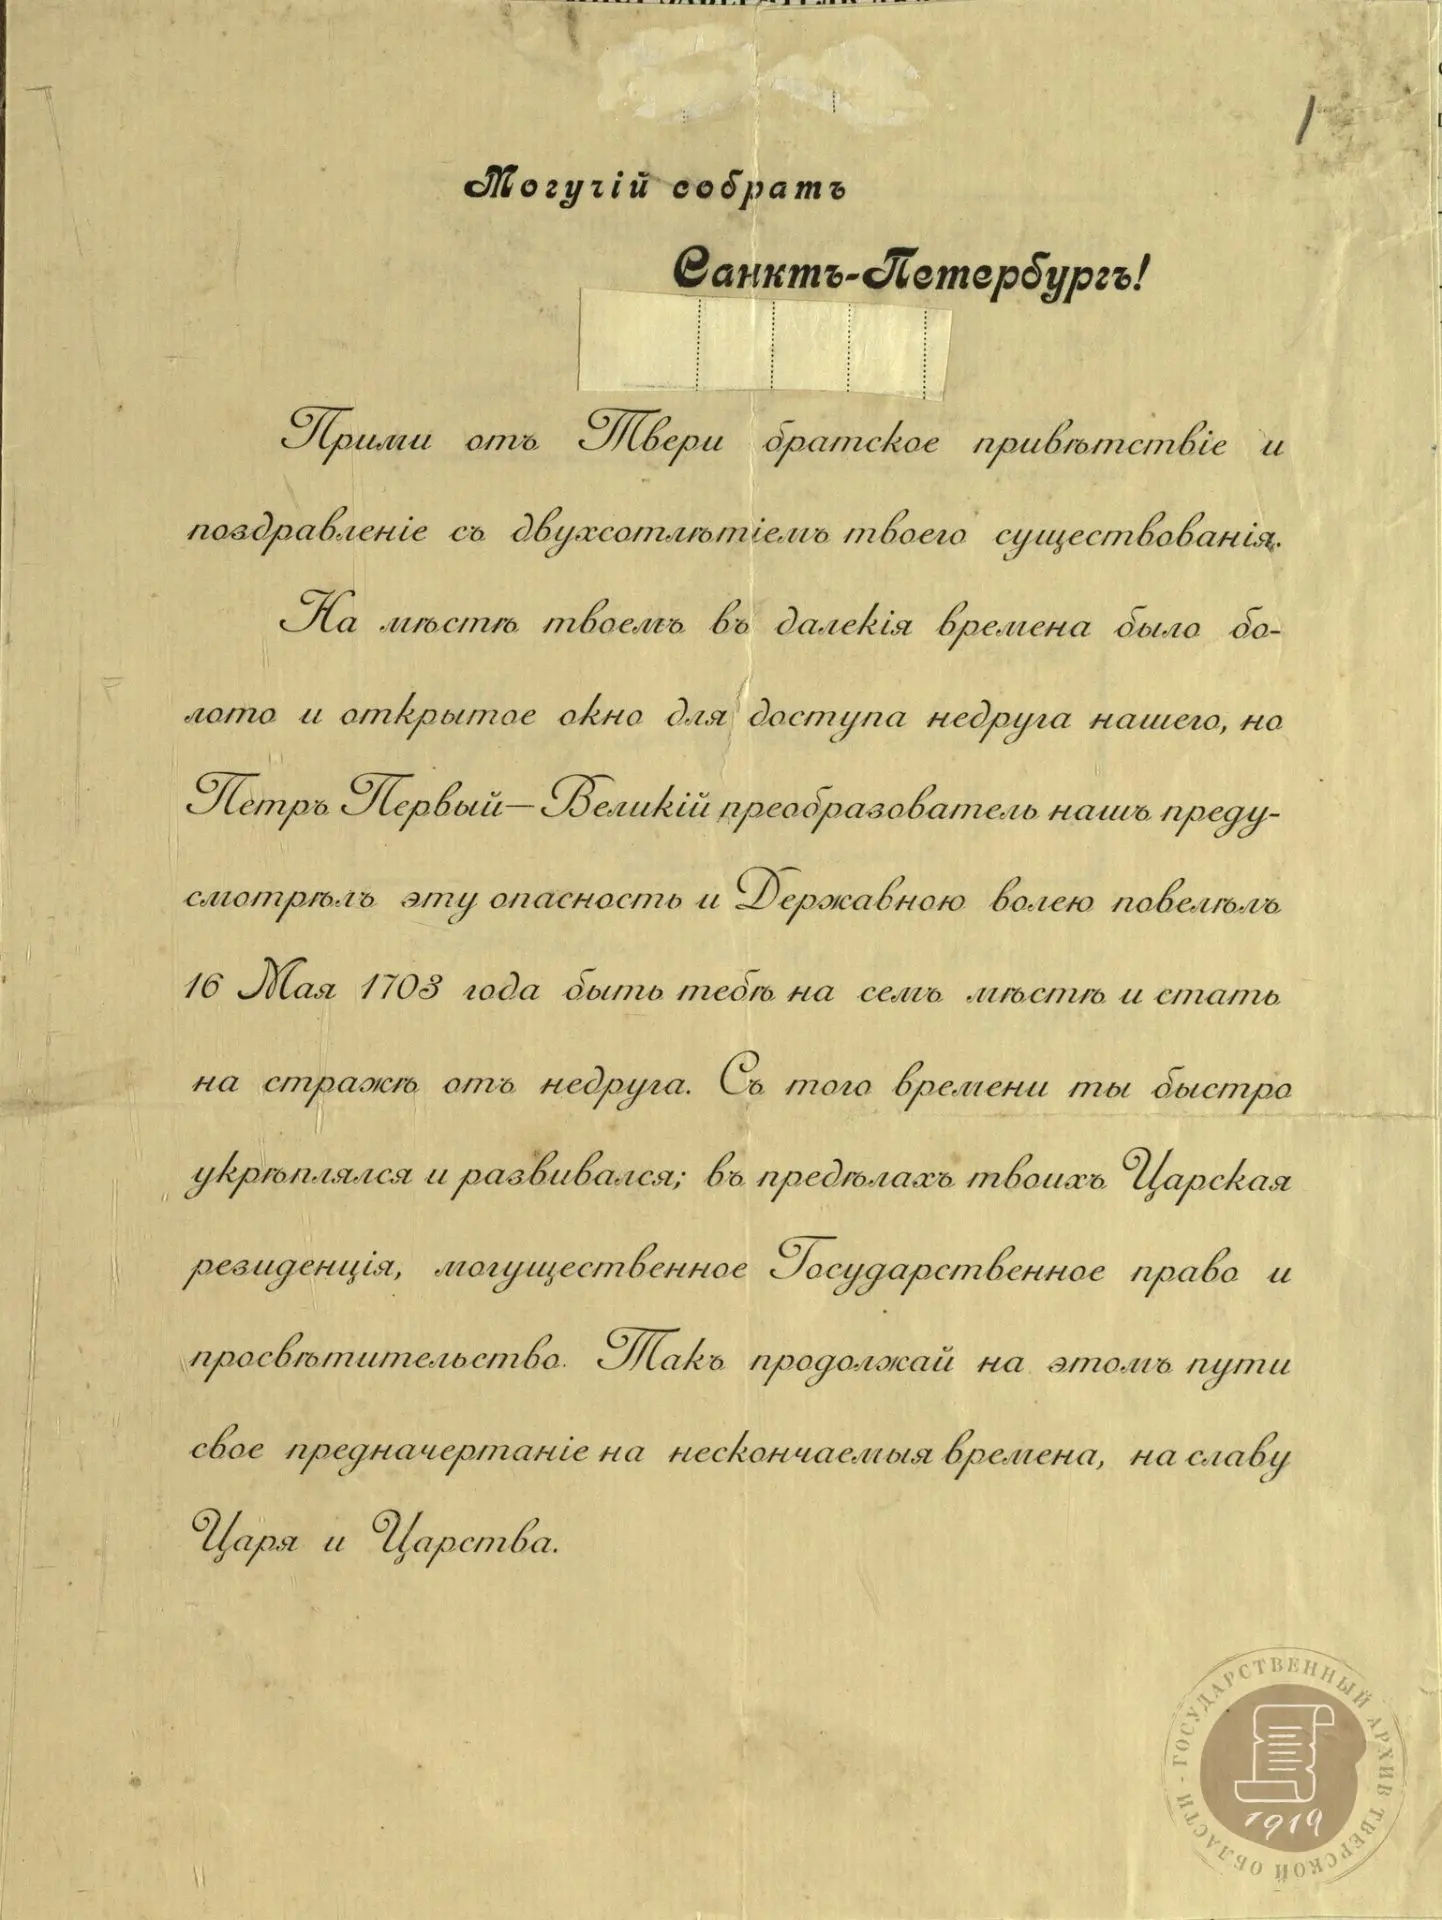 1
Могучій собратъ
Санктъ-Петербургъ!
Прими отъ Твери братское привѣтствіе и
поздравленіе съ двухсотлѣтіемъ твоего существованія.
На мѣстѣ твоемъ въ далекія времена было бо-
лото и открытое окно для доступа недруга нашего, но
Петръ Первый—Великій преобразователь нашъ преду-
смотрѣлъ эту опасность и Державною волею повелѣлъ
16 Мая 1703 года быть тебѣ на семъ мѣстѣ и стать
на стражѣ отъ недруга. Съ того времени ты быстро
укрѣплялся и развивался; въ предѣлахъ твоихъ Царская
резиденція, могущественное Государственное право и
просвѣтительство. Такъ продолжай на этомъ пути
свое предначертаніе на нескончаемыя времена, на славу
Царя и Царства.
ГОСУДАРСТВЕННЫЙ АРХИВ ТВЕРСКОЙ ОБЛАСТИ
1919